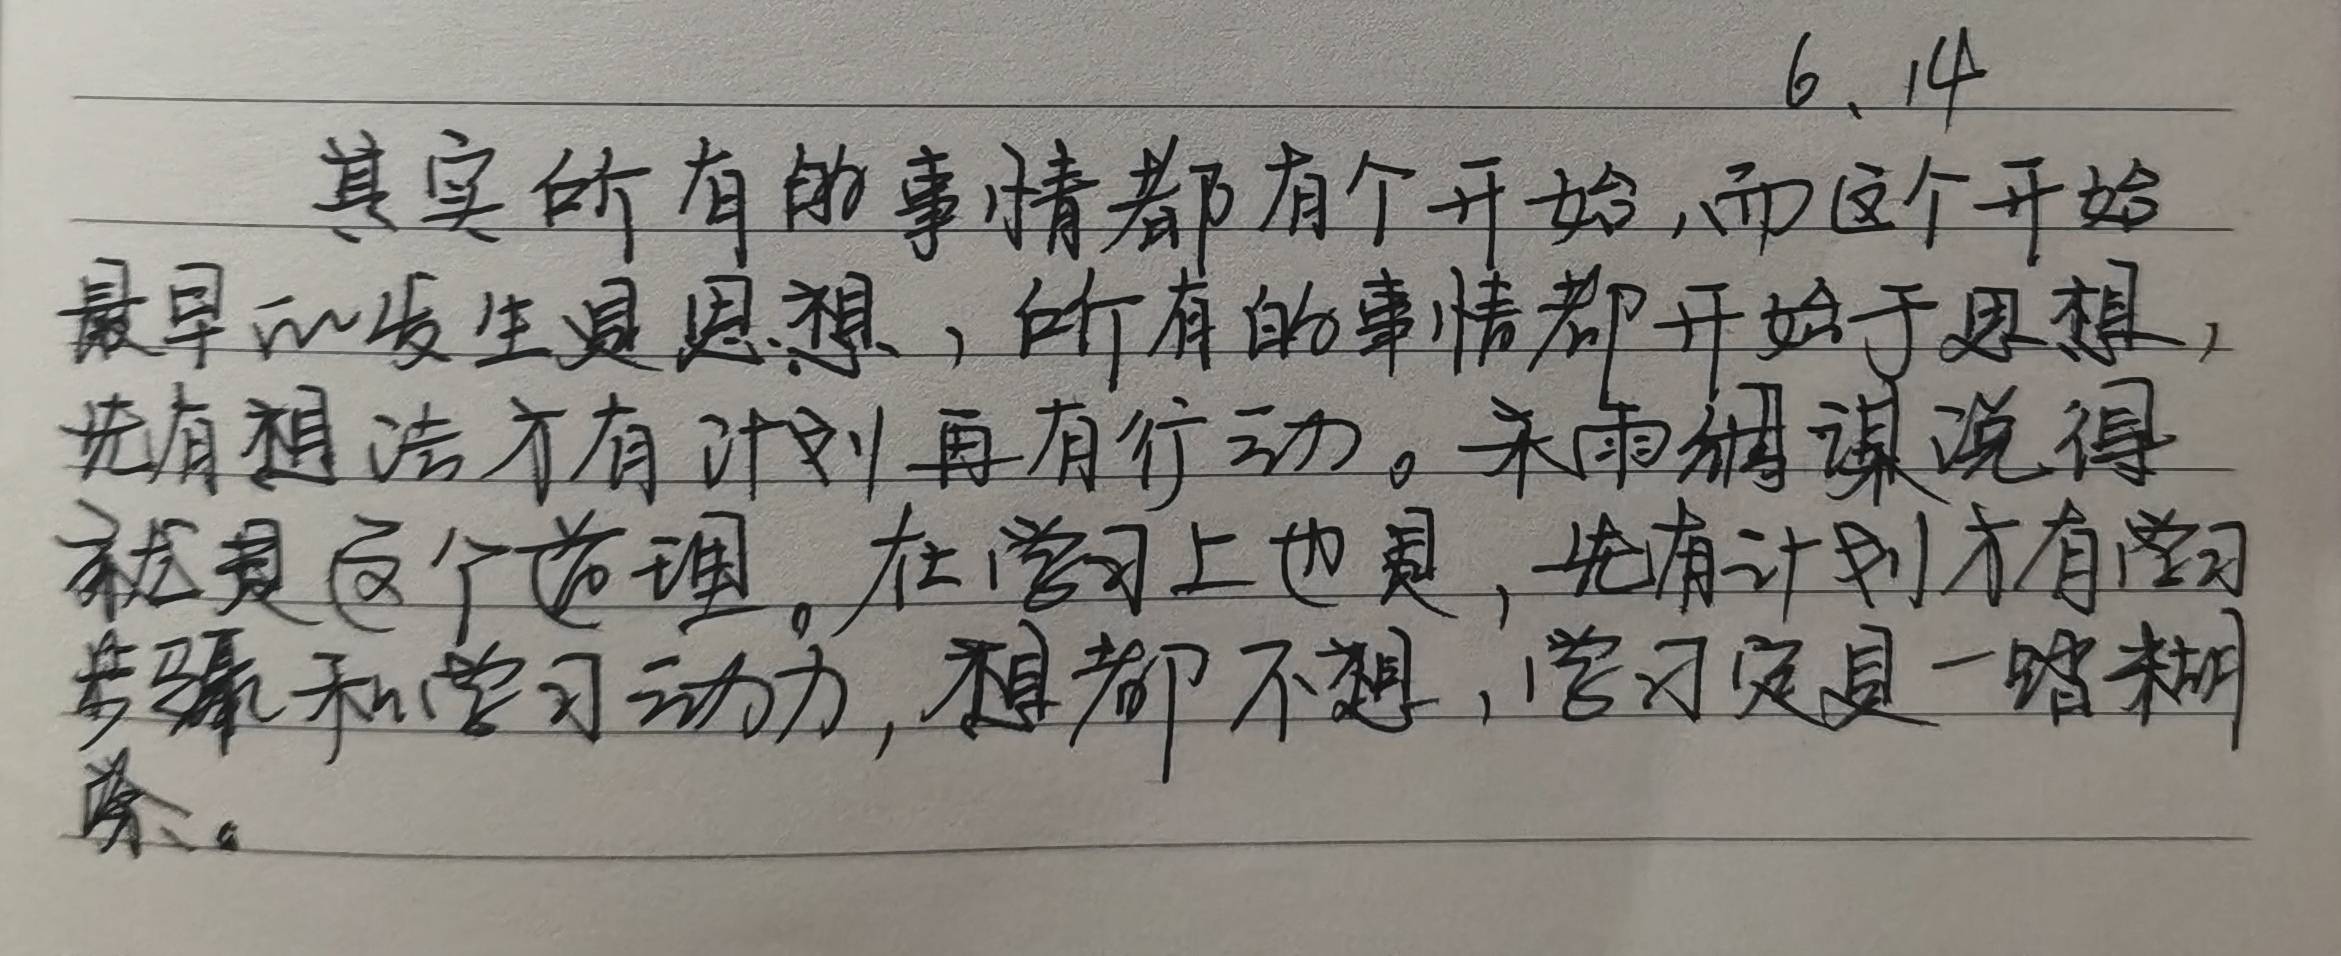 6、14
其实所有的事情都有个开始,而这个开始
最早的发生是思想,所有的事情都开始于思想,
先有想法才有计划再有行动。未雨绸谋说得
就是这个道理。在学习上也是,先有计划才有学习
步骤和学习动力,想都不想,学习定是一踏糊
涂。